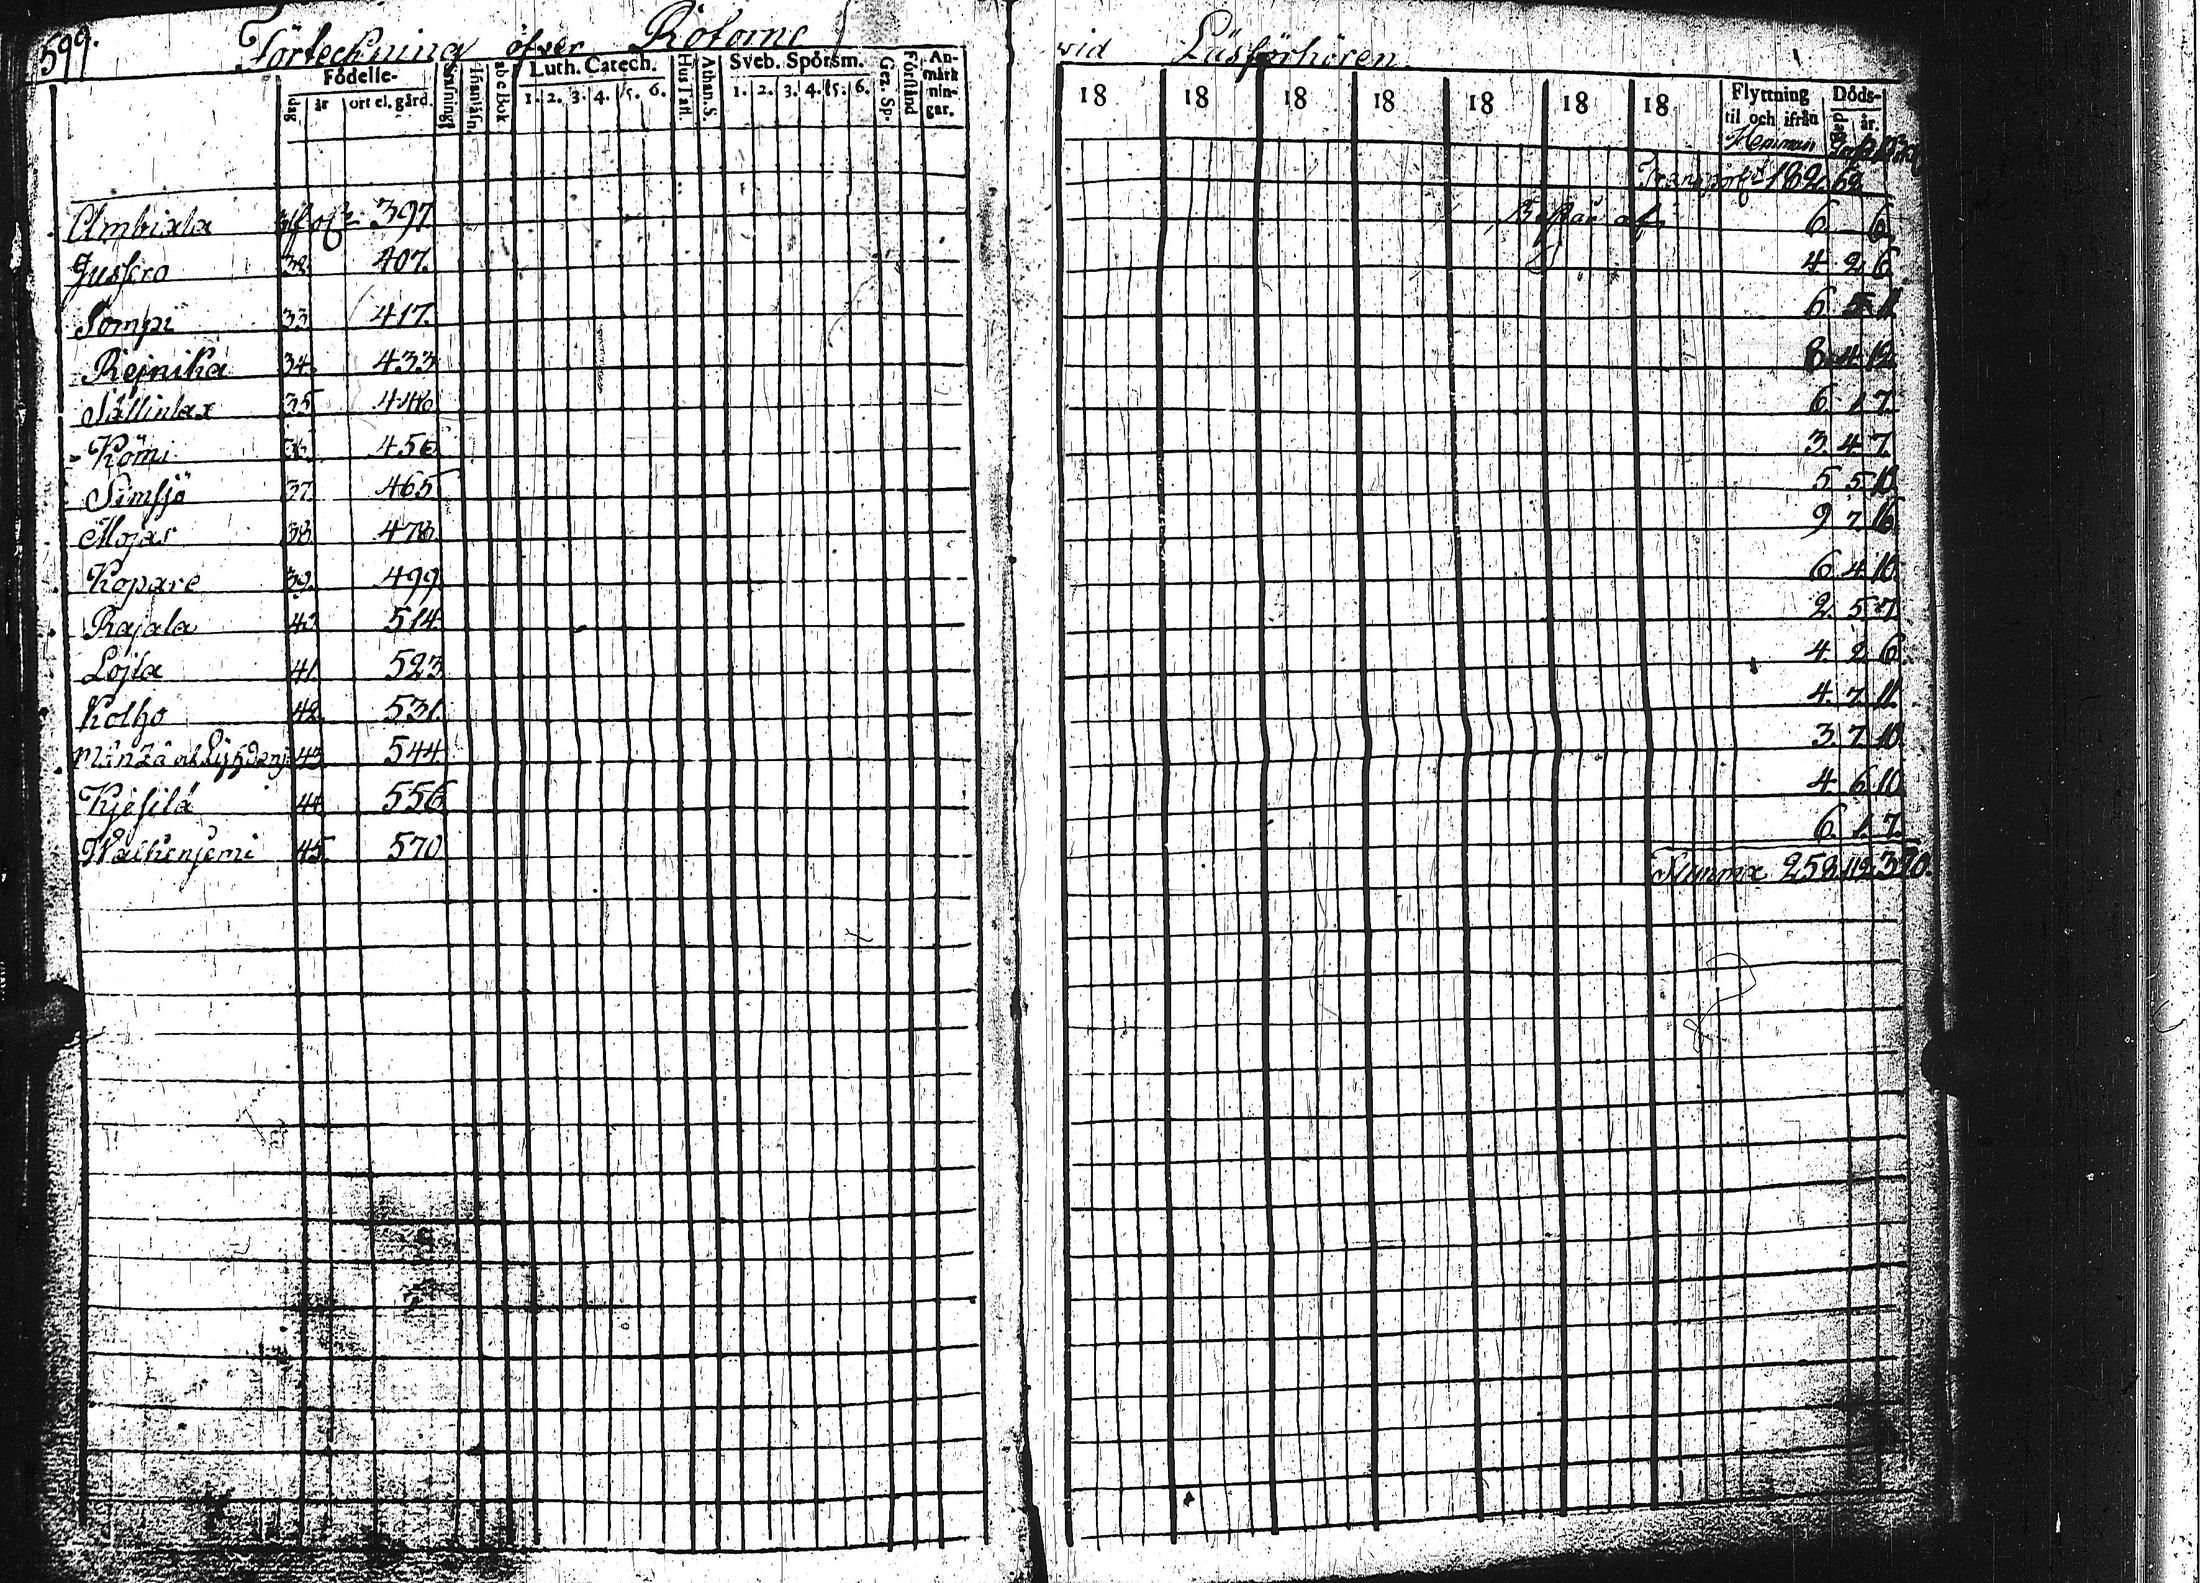 599. Förteckning öfver Rotorne
vid Läsförhören.
Födelse-
dag år ort el. gård.
ab c Bok
Luth. Catech.
1. 2. 3. 4. 5. 6.
Athan. S.
Sveb. Spörsm.
1. 2. 3. 4. 5. 6.
Ger. Sp.
Förstånd
An-
märk
nin-
gar.
18 18 18 18 18 18 18
Flyttning
til och ifrån
Döds-
dag år.
Hemman
Transport 182. 62
397. Består af 6 6
32. 407. 4. 2. 6.
Sompi 33. 417. 6. 5. 11.
Rejnika 34. 433. 8. 4. 12.
Sällinlax 35. 446. 6. 1. 7.
Kömi 36. 456. 3. 4. 7.
Simsjö 37. 465 5 5 10.
Mojas 38. 478. 9. 7. 16.
Kopare 39. 499. 6. 4. 10.
Rajala 40. 514. 2. 5. 7.
Lojla 41. 523. 4. 2. 6.
Kolho 42. 531. 4. 7. 11.
43. 544. 3. 7. 10.
Kjesilä 44. 556. 4. 6. 10.
45. 570. 6. 1. 7.
Summa 258. 112. 370.